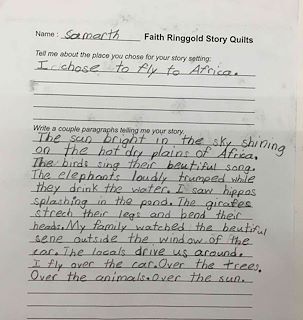 Name: Samarth Faith Ringgold Story Quilts
Tell me about the place you chose for your story setting:
I chose to fly to Africa.
Write a couple paragraphs telling me your story.
The sun bright in the sky shining
on the hot dry plains of Africa.
The birds sing their beutiful song.
The elephants loudly trumped while
they drink the water. I saw hippos
splashing in the pond. The girafes
strech their legs and bend their
heads. My family watched the beutiful
sene outside the window of the
car. The locals drive us around.
I fly over the car. Over the trees.
Over the animals. Over the sun.